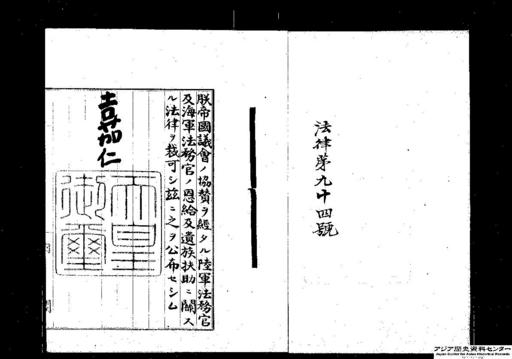 法律第九十四號
朕帝國議會ノ協賛ヲ經タル陸軍法務官
及海軍法務官ノ恩給及遺族扶助ニ關ス
ル法律ヲ裁可シ茲ニ之ヲ公布セシム
嘉仁
天皇
御璽
アジア歴史資料センター
Japan Center for Asian Historical Records